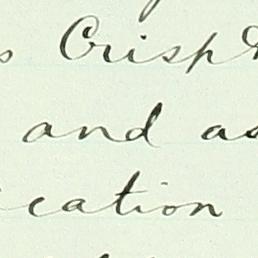 s Crisp
and as
ication